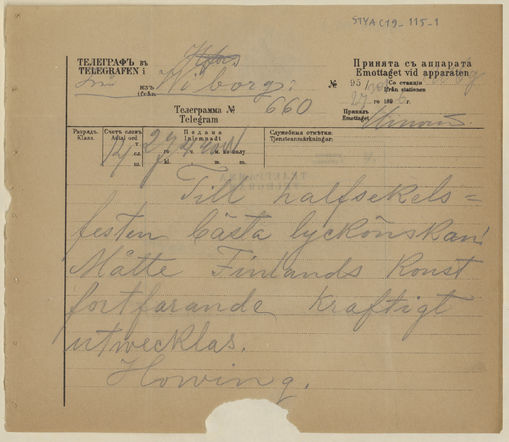 STYA C19_115_1
ТЕЛЕГРАФЪ въ
TELEGRAFEN i
Hfors
Принята съ аппарата
Emottaget vid apparaten
изъ
ifrån
Wiborg
№ 95
Со станціи
från stationen
27 го 189
Телеграмма №
Telegram
660
Принялъ
Emottaget
Разрядъ.
Klass.
Счетъ словъ.
Antal ord
12
Подана
Inlemnadt
27
го
ч.
м.
по полу
kl.
m.
m.
Служебныя отмѣтки.
Tjensteanmärkningar:
Till halfsekels=
festen bästa lyckönskan!
Måtte Finlands Konst
fortfarande kraftigt
utwecklas.
Howing.